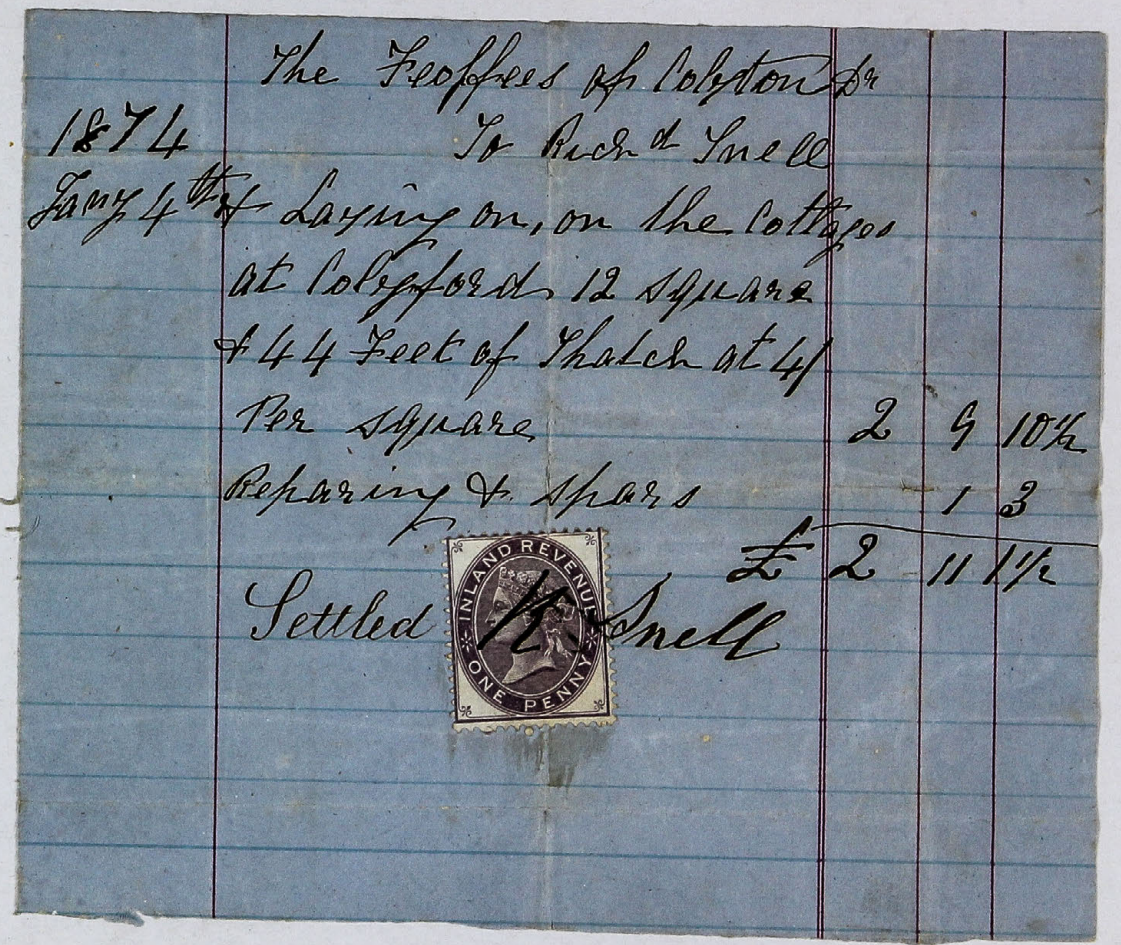 The Feoffees of Colyton Dr
1874 To Richd Snell
Jany 4th & Laying on, on the Cottages
at Colyford 12 square
& 44 Feet of Thatch at 4/
Per square 2 9 10½
Reparing & spars 1 3
£ 2 11 1½
Settled R. Snell
INLAND REVENUE
ONE PENNY